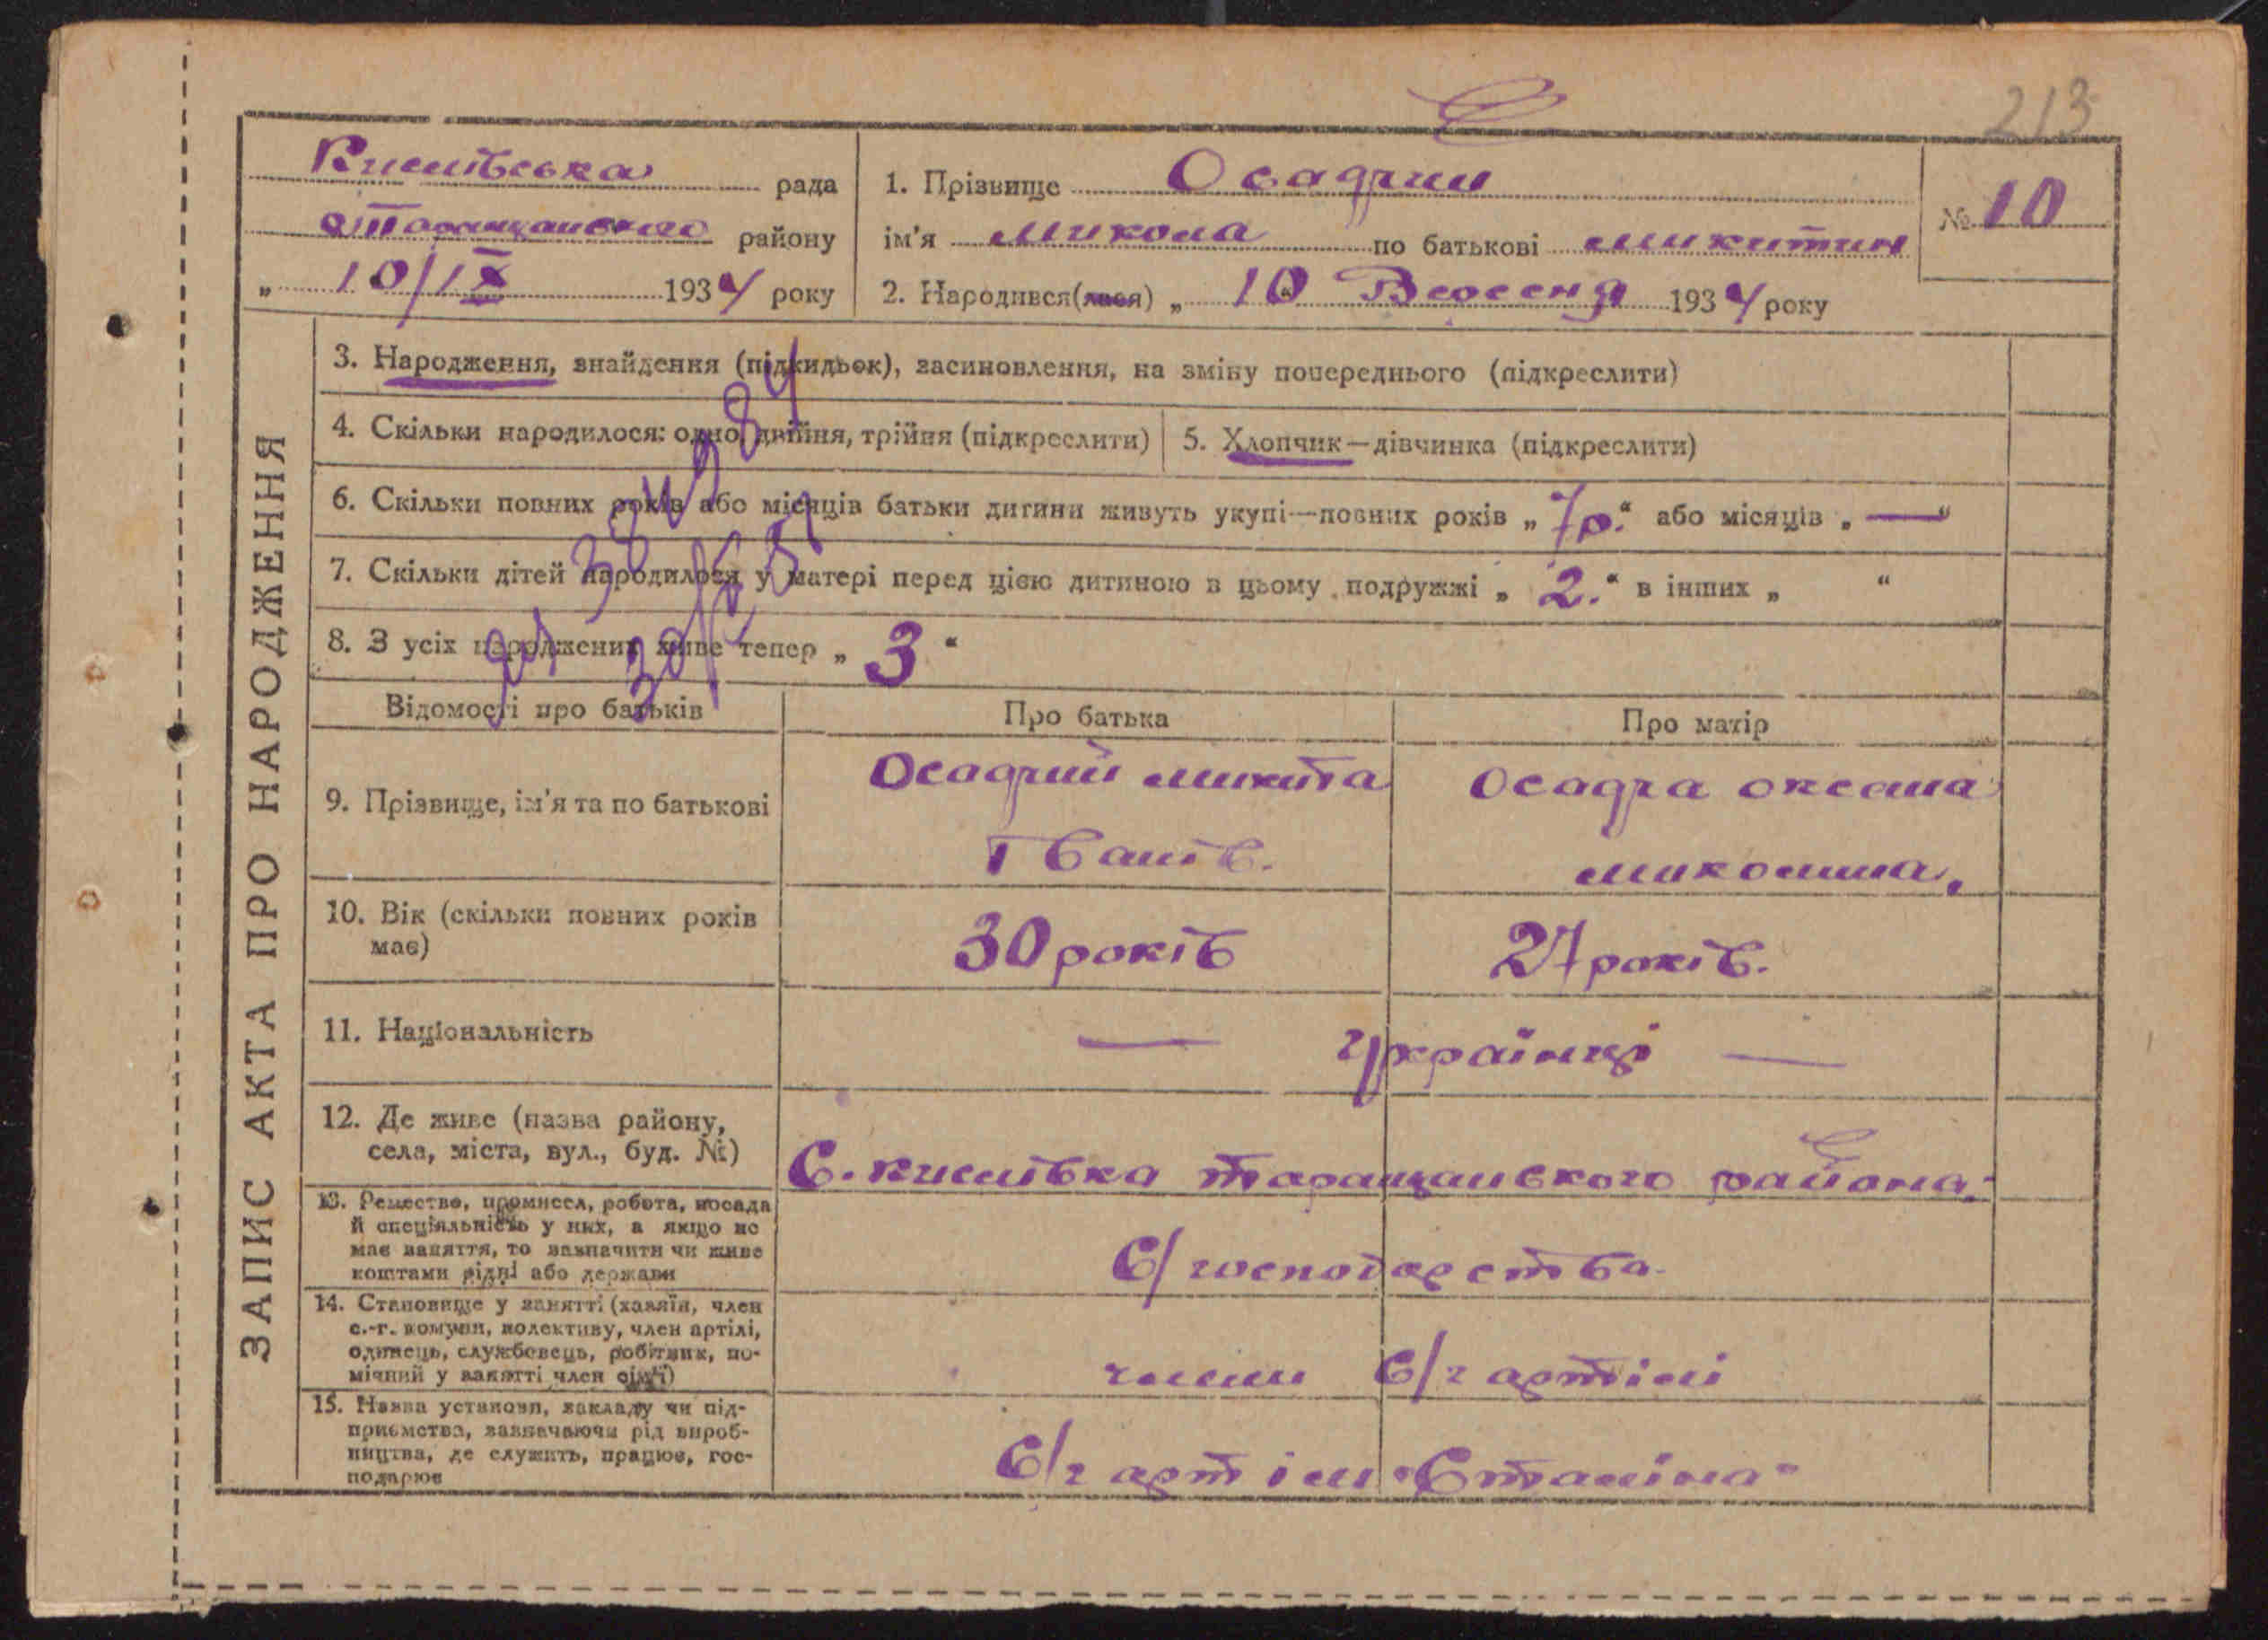 213
Кислівська рада
Таращанського району
„ 10/IX 1934 року
1. Прізвище Осадчий
ім'я Микола по батькові Микитин
2. Народився(лася) „ 10 " Вересня 1934 року
№ 10
ЗАПИС АКТА ПРО НАРОДЖЕННЯ
3. Народження, знайдення (підкидьок), засиновлення, на зміну попереднього (підкреслити)
4. Скільки народилося: одно, двійня, трійня (підкреслити)
5. Хлопчик—дівчинка (підкреслити)
6. Скільки повних років або місяців батьки дитини живуть укупі—повних років „ 7р. “ або місяців „ — “
7. Скільки дітей народилося у матері перед цією дитиною в цьому подружжі „ 2. “ в інших „ “
8. З усіх народжених живе тепер „ 3 “
Відомості про батьків
Про батька
Про матір
9. Прізвище, ім'я та по батькові
Осадчий Микита
Іванів.
Осадча Оксана
Миколина.
10. Вік (скільки повних років
має)
30 років
27 років.
11. Національність
— Українці —
12. Де живе (назва району,
села, міста, вул., буд. №)
С. Кислівка Таращанського района.
13. Ремество, промисел, робота, посада
й спеціяльність у них, а якщо не
має заняття, то зазначити чи живе
коштами рідні або держави
С/господарства
14. Становище у занятті (хазяїн, член
с.-г. комуни, колективу, член артілі,
одинець, службовець, робітник, по-
мічний у занятті член сім'ї)
члени С/г артілі
15. Назва установи, закладу чи під-
приємства, зазначаючи рід вироб-
ництва, де служить, працює, гос-
подарює
С/г артіли "Сталіна"